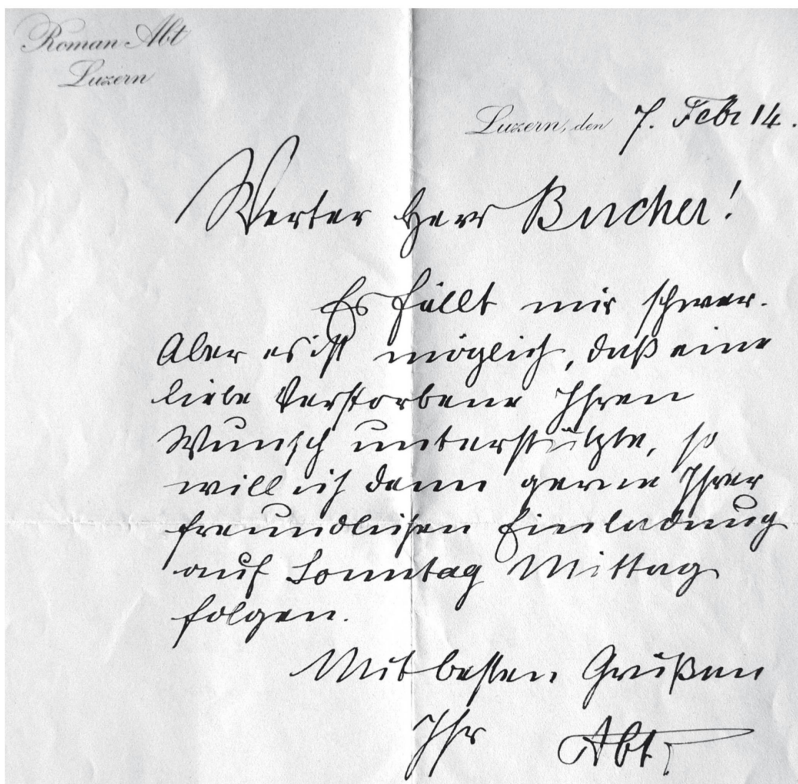 Roman Abt
Luzern
Luzern, den 7. Febr 14.
Werter Herr Bucher!
Es fällt mir schwer.
Aber es ist möglich, daß eine
liebe Verstorbene Ihren
Wunsch unterstützte, so
will ich denn gerne Ihrer
freundlichen Einladung
auf Sonntag Mittag
folgen.
Mit besten Grüßen
Ihr Abt